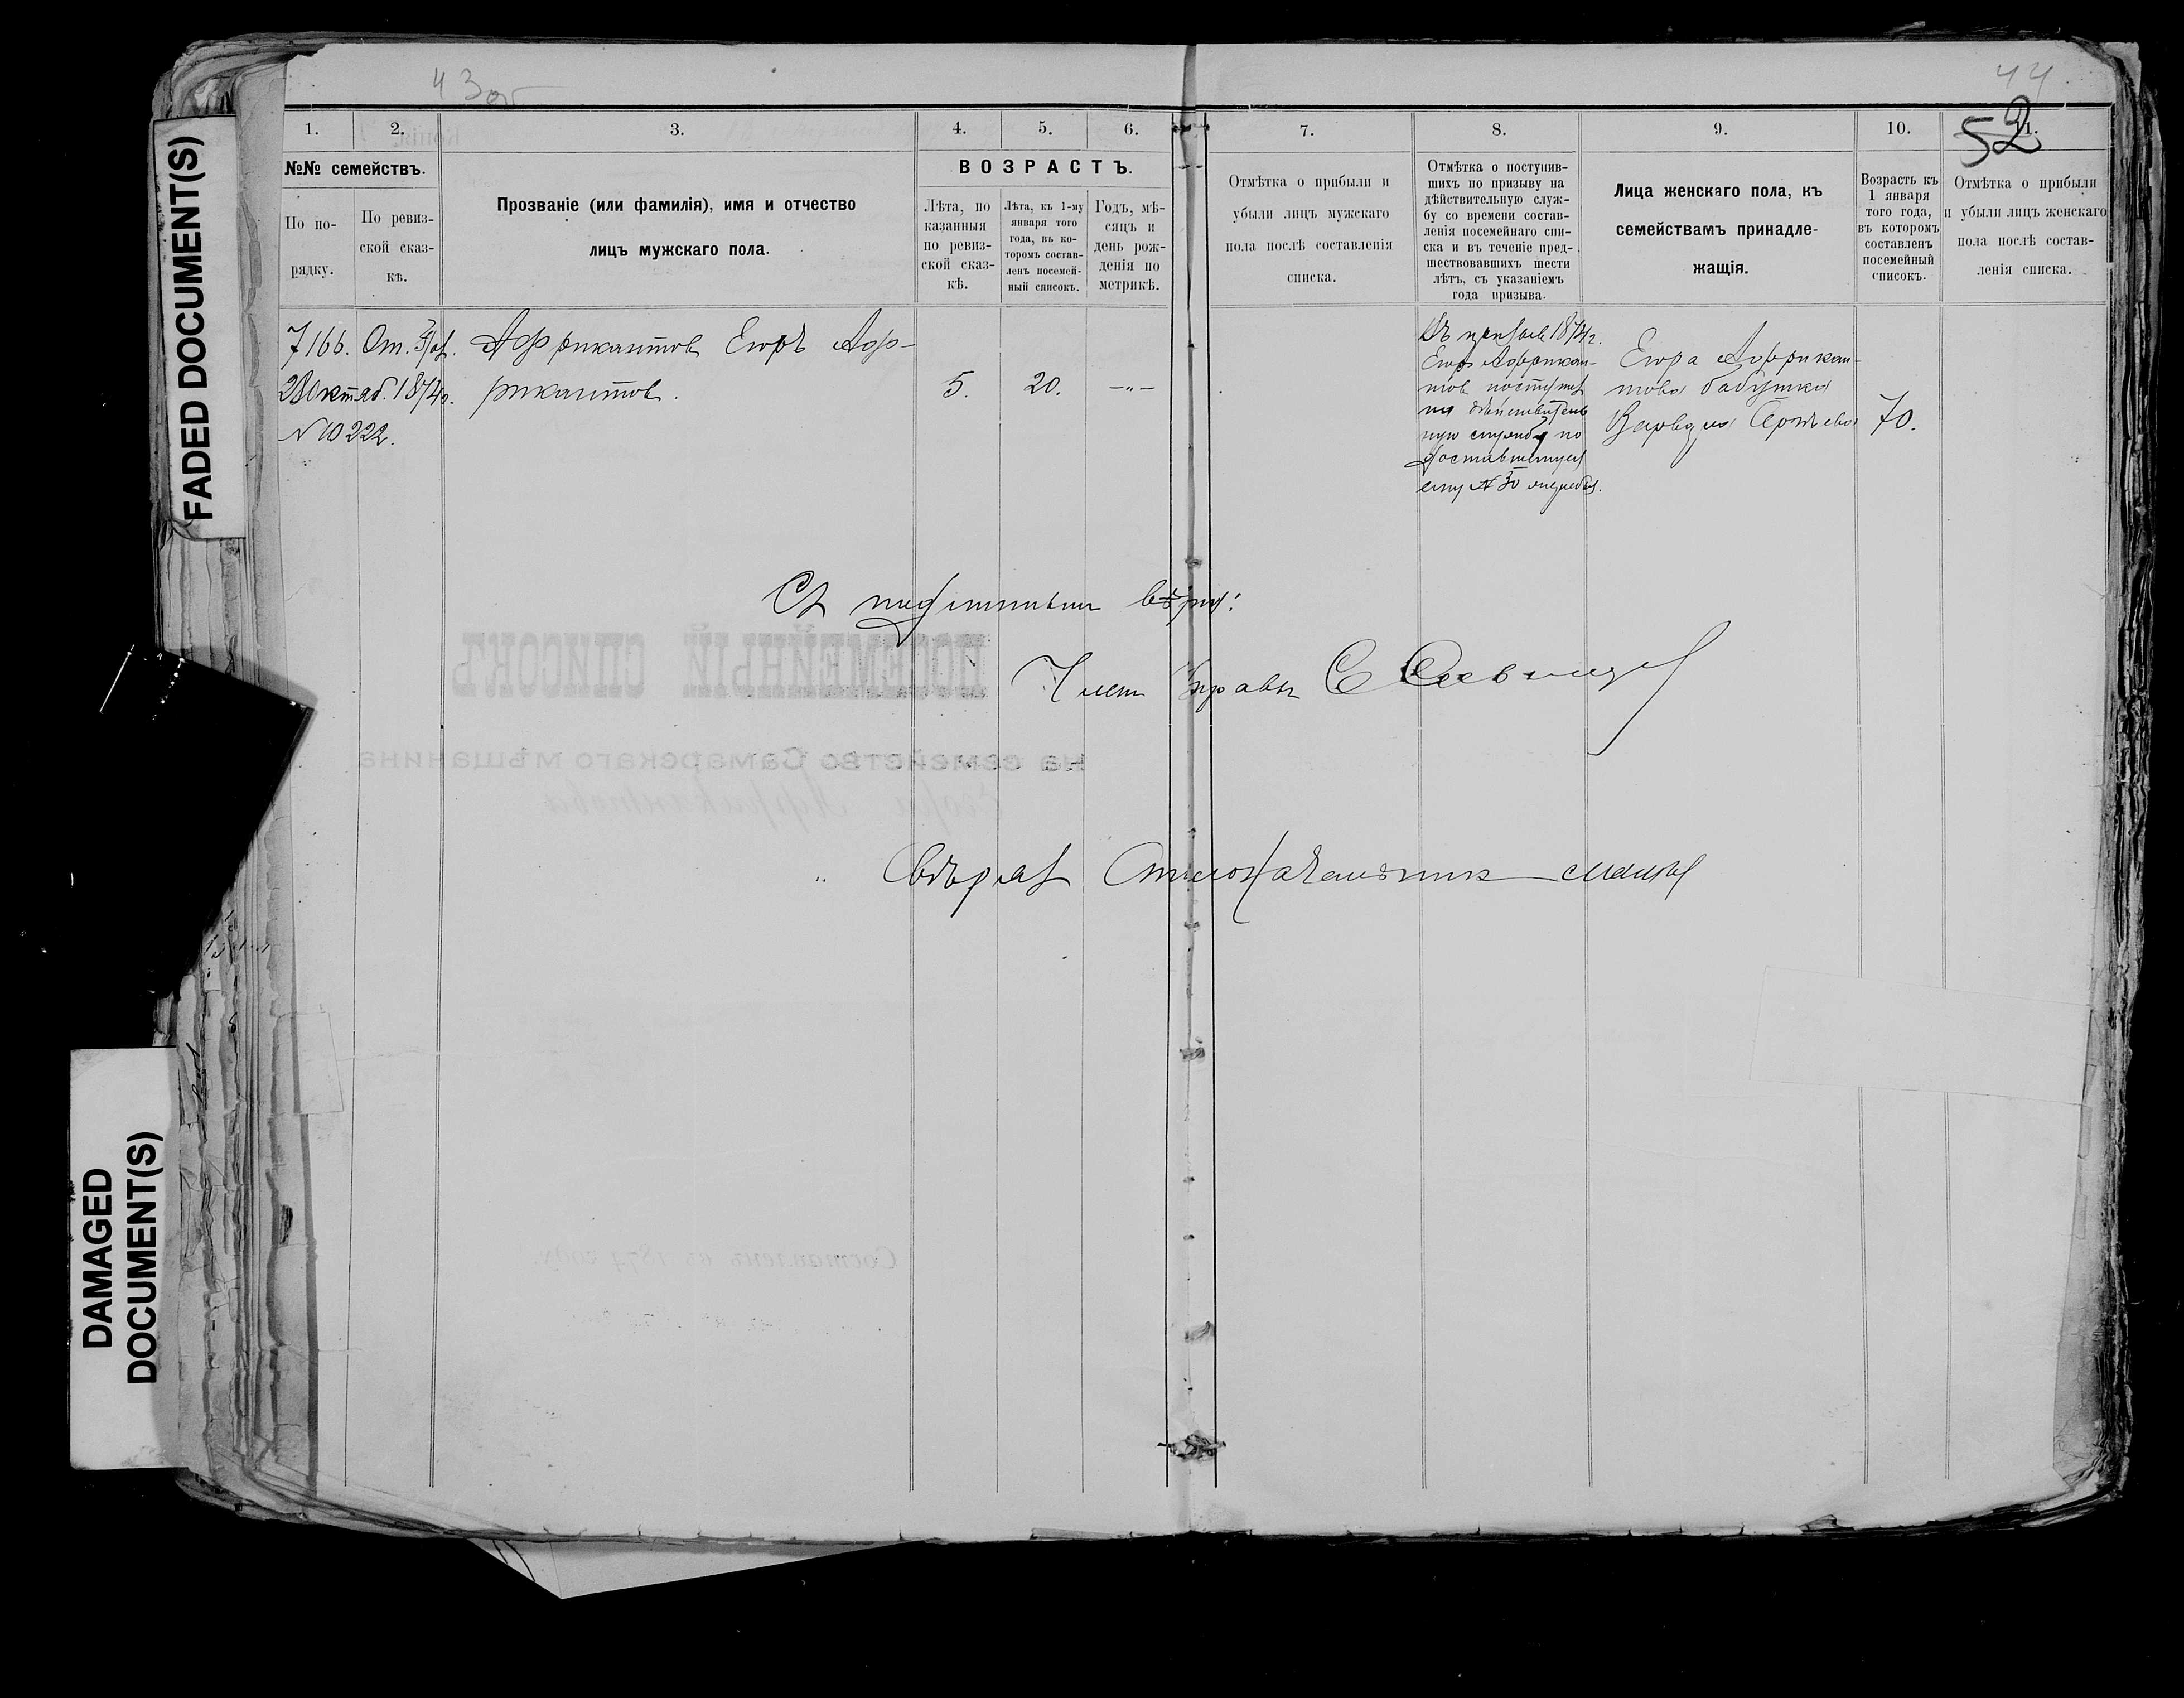 43 об
44
52
FADED DOCUMENT(S)
DAMAGED
DOCUMENT(S)
1.
2.
3.
4.
5.
6.
7.
8.
9.
10.
11.
№№ семействъ.
По по-
рядку.
По ревиз-
ской сказ-
кѣ.
Прозваніе (или фамилія), имя и отчество
лицъ мужскаго пола.
ВОЗРАСТЪ.
Лѣта, по
казанныя
по ревиз-
ской сказ-
кѣ.
Лѣта, къ 1-му
января того
года, въ ко-
торомъ состав-
ленъ посемей-
ный списокъ.
Годъ, мѣ-
сяцъ и
день рож-
денія по
метрикѣ.
Отмѣтка о прибыли и
убыли лицъ мужскаго
пола послѣ составленія
списка.
Отмѣтка о поступив-
шихъ по призыву на
дѣйствительную служ-
бу со времени состав-
ленія посемейнаго спи-
ска и въ теченіе пред-
шествовавшихъ шести
лѣтъ, съ указаніемъ
года призыва.
Лица женскаго пола, къ
семействамъ принадле-
жащія.
Возрасть къ
1 января
того года,
въ которомъ
составленъ
посемейный
списокъ.
Отмѣтка о прибыли
и убыли лицъ женскаго
пола послѣ состав-
ленія списка.
7166. От.
Октяб. 1874 г.
№ 10222.
Аффрикантов Егоръ Аф-
рикантов.
5.
20.
—„—
Въ призыв 1874 г.
Егор Аффрикан-
тов поступил
на действитель
ную службу по
доставшемуся
ему № 30 жеребью.
Егора Аффрикан-
това бабушка
Варвара Сергѣева
70.
Съ подлиннымъ вѣрно:
Член Управы
ПОСЕМЕЙНЫЙ СПИСОКЪ
на семейство Самарскаго мѣщанина
Егора Аффрикантова
Составленъ въ 1874 году